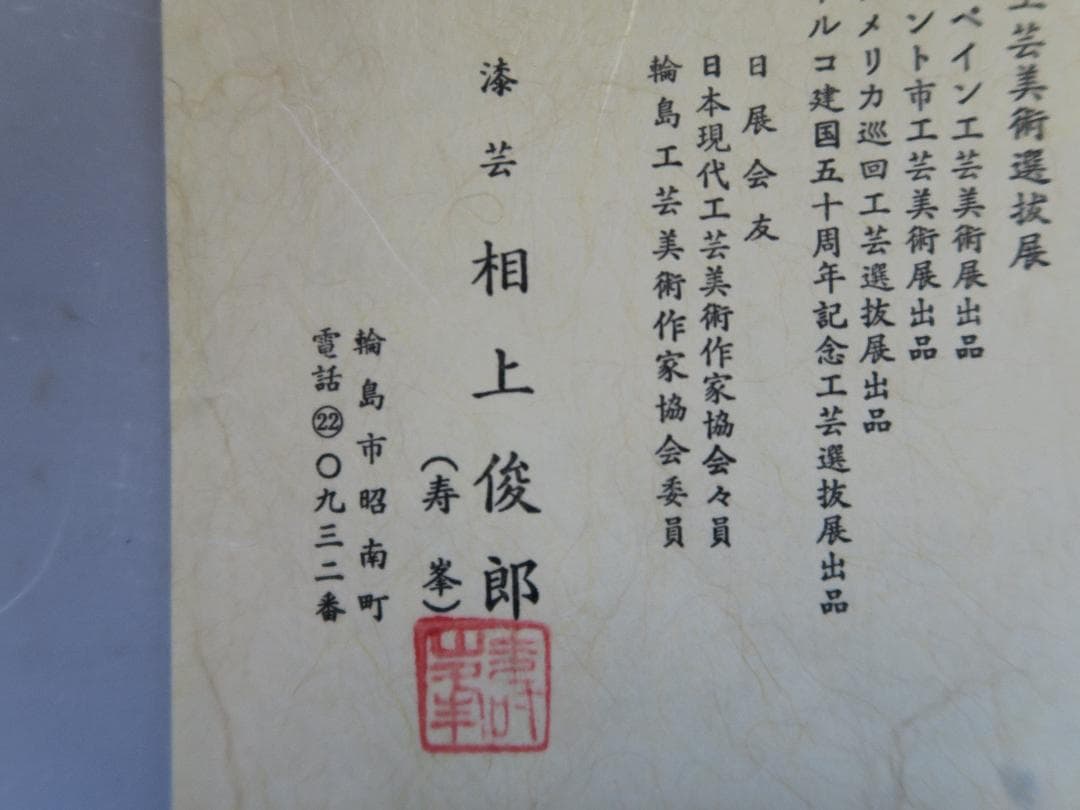 工芸美術選抜展
ペイン工芸美術展出品
ント市工芸美術展出品
メリカ巡回工芸選抜展出品
ルコ建国五十周年記念工芸選抜展出品
日展会友
日本現代工芸美術作家協会々員
輪島工芸美術作家協会委員
漆芸 相上俊郎
(寿峯)
輪島市昭南町
電話㉒〇九三二番
壽峯